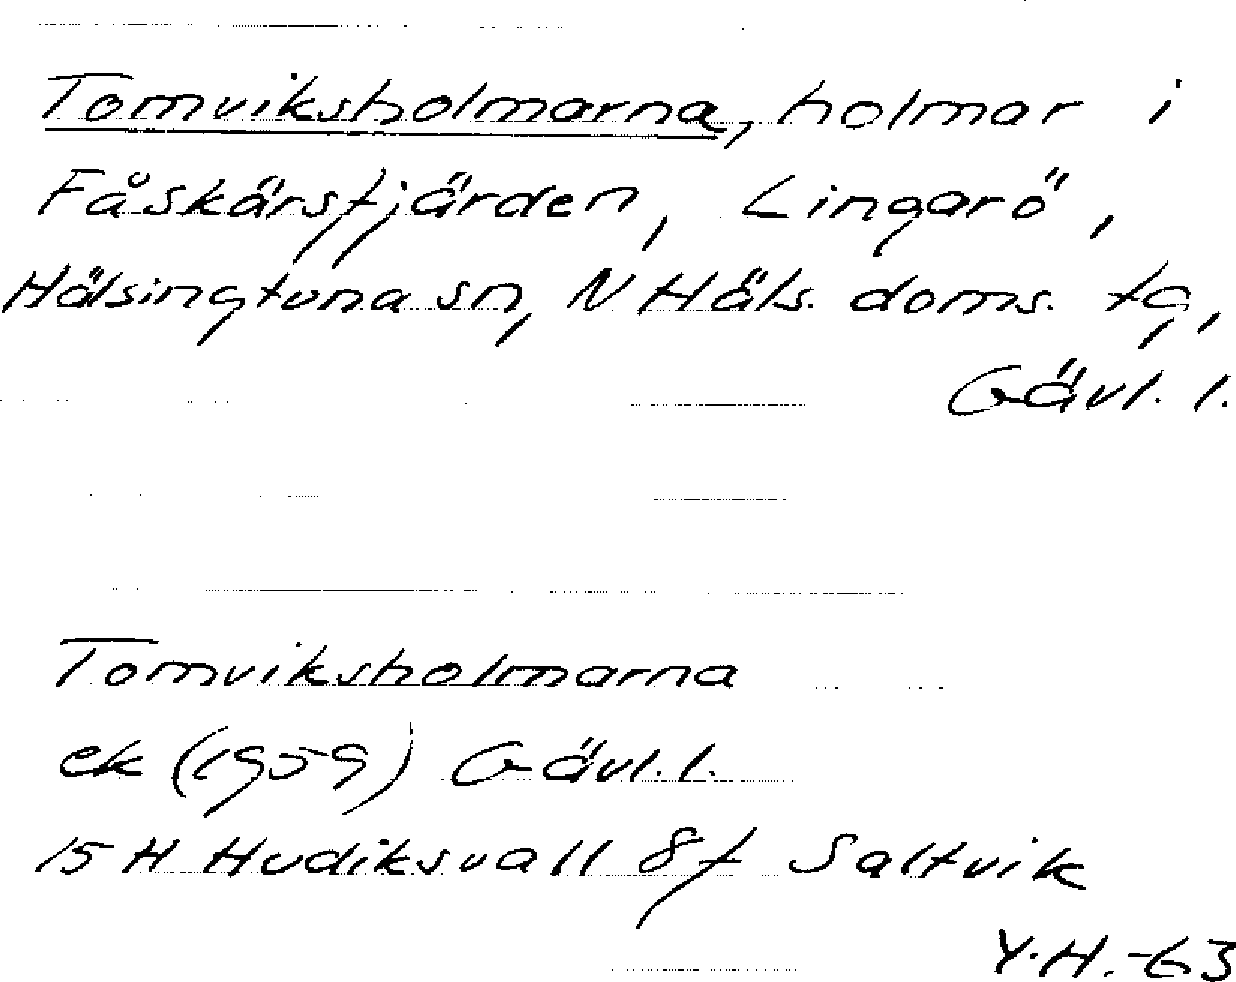 Tomviksholmarna, holmar i
Fåskärsfjärden, Lingarö,
Hälsingtuna sn, N Häls. doms. tg,
Gävl. l.
Tomviksholmarna
ek (1959) Gävl. l.
15 H Hudiksvall 8f Saltvik
Y.H.-63